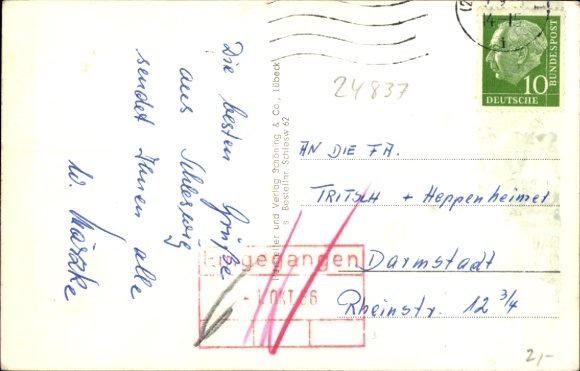 Die besten Grüße
aus Schleswig
sendet Ihnen alle
W.
Hersteller und Verlag Schöning & Co., Lübeck
Bestellnr. Schlesw 62
24837
14.-
10
DEUTSCHE
BUNDESPOST
AN DIE FA.
TRITSCH + Heppenheimer
Darmstadt
Rheinstr. 12 3/4
Eingegangen
- 1. OKT. 56
2,-